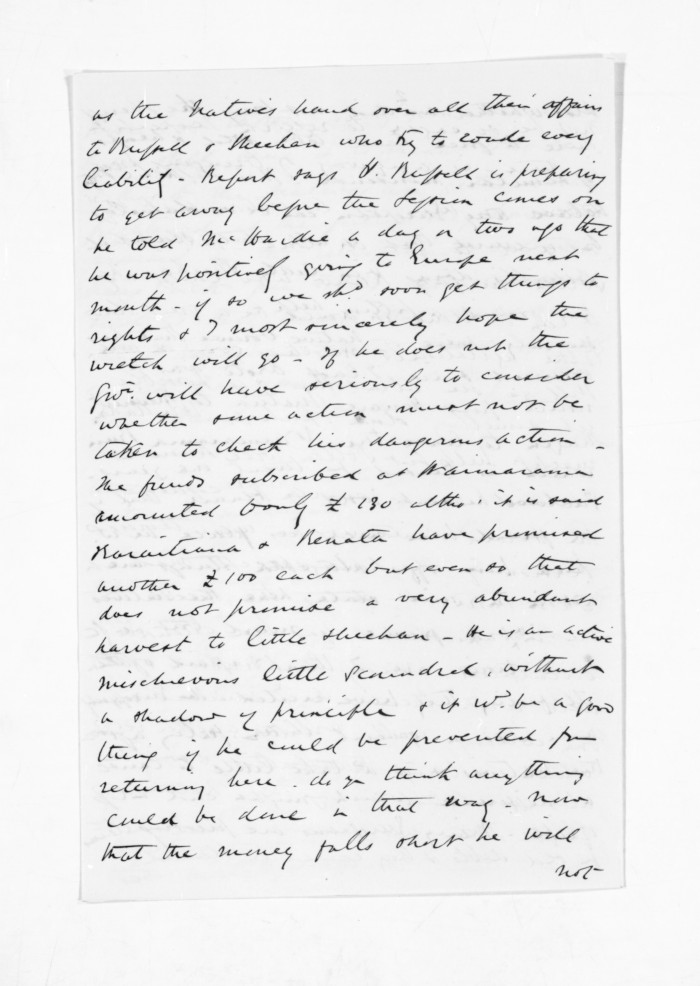 as the Natives hand over all their affairs
to Russell & Sheehan who try to evade every
liability - Report says H. Russell is preparing
to get away before the Session comes on
he told McHardie a day or two ago that
he was positively going to Europe next
month - if so we shd. soon get things to
rights & I most sincerely hope the
wretch will go - If he does not the
Govt. will have seriously to consider
whether some action must not be
taken to check his dangerous action -
The funds subscribed at Waimarama
amounted to only £130 altho' it is said
Karaitiana & Renata have promised
another £100 each but even so that
does not promise a very abundant
harvest to little Sheehan - He is an active
mischievous little Scoundrel, without
a shadow of principle & it wd. be a good
thing if he could be prevented from
returning here. do you think anything
could be done in that way - Now
that the money falls short he will
not